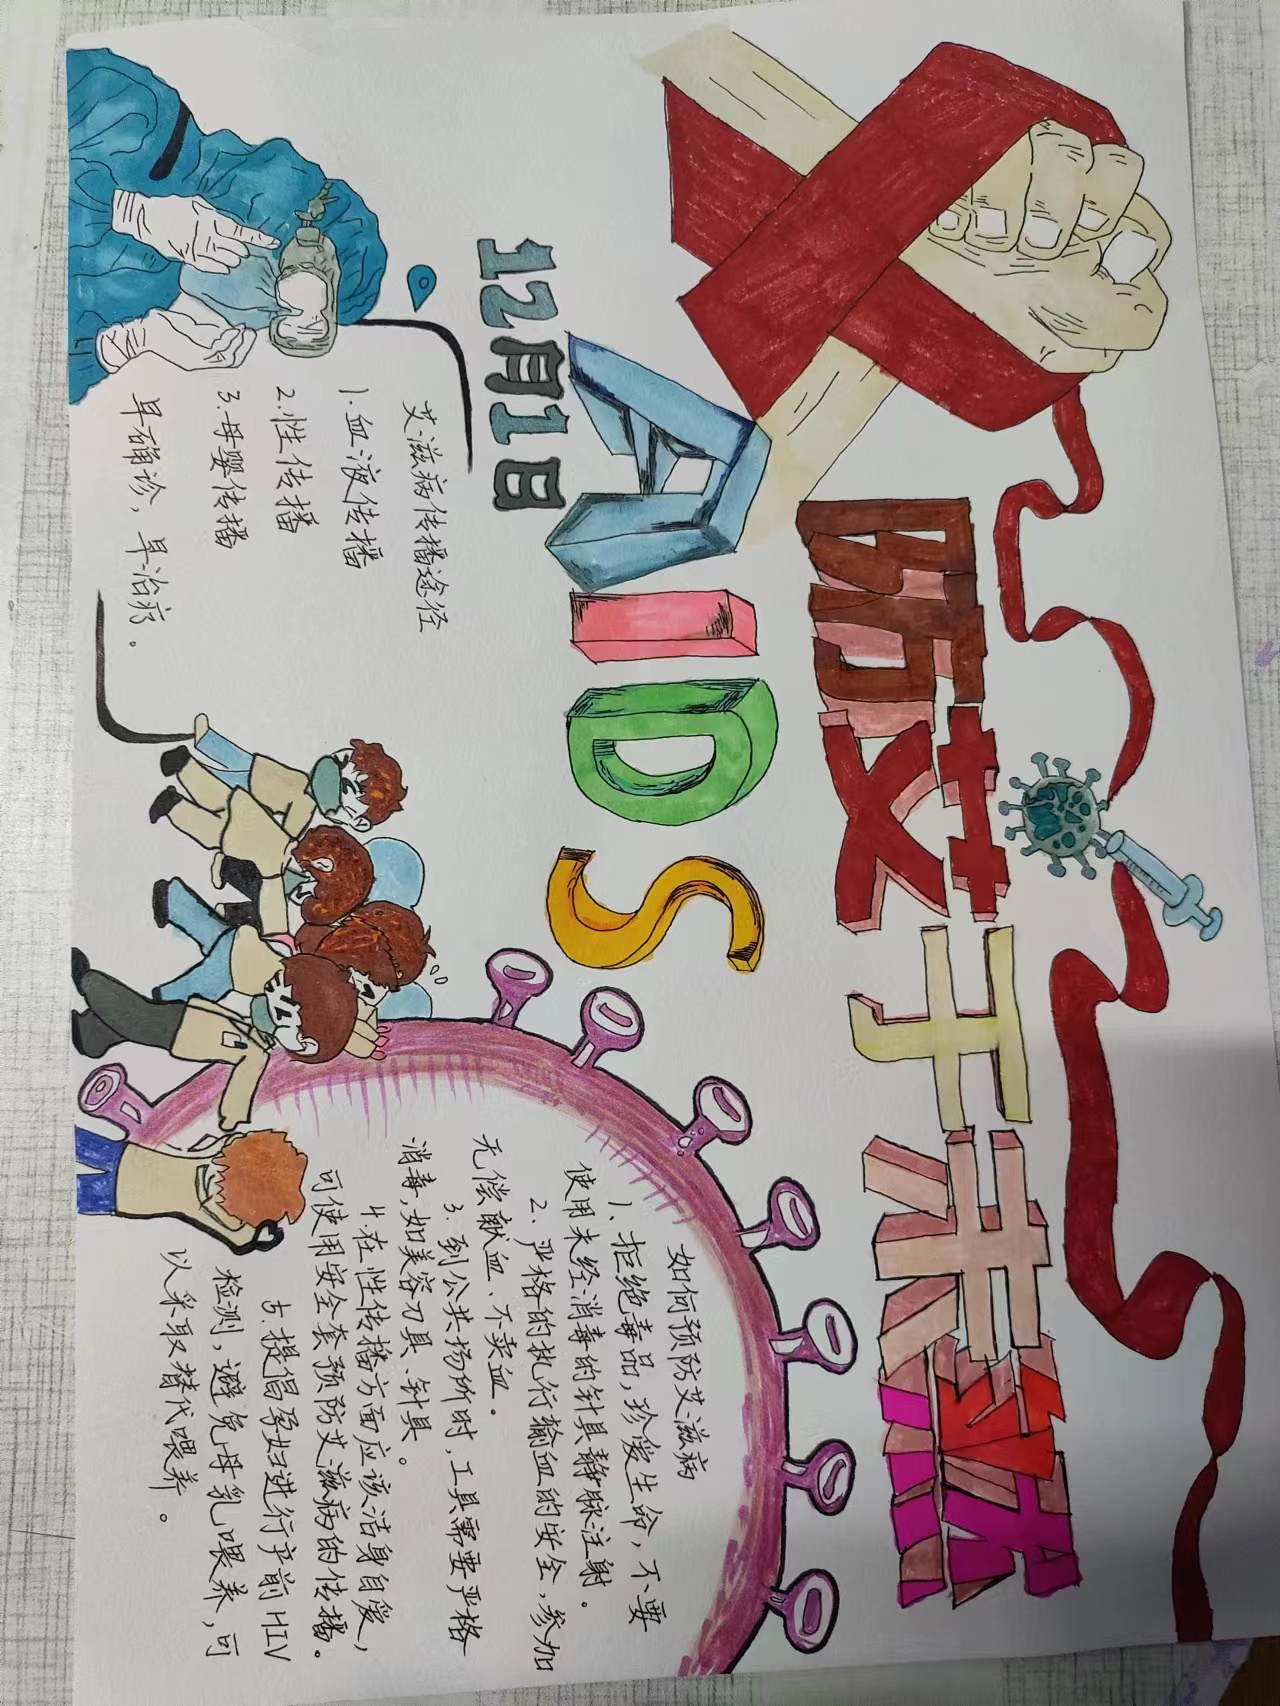 防艾于未然
AIDS
12月1日
艾滋病传播途径
1.血液传播
2.性传播
3.母婴传播
早确诊，早治疗。
如何预防艾滋病
1、拒绝毒品，珍爱生命，不要
使用未经消毒的针具静脉注射。
2、严格的执行输血的安全，参加
无偿献血、不卖血。
3、到公共场所时，工具需要严格
消毒，如美容刀具、针具。
4.在性传播方面应该洁身自爱，
可使用安全套预防艾滋病的传播。
5.提倡孕妇进行产前HIV
检测，避免母乳喂养，可
以采取替代喂养。